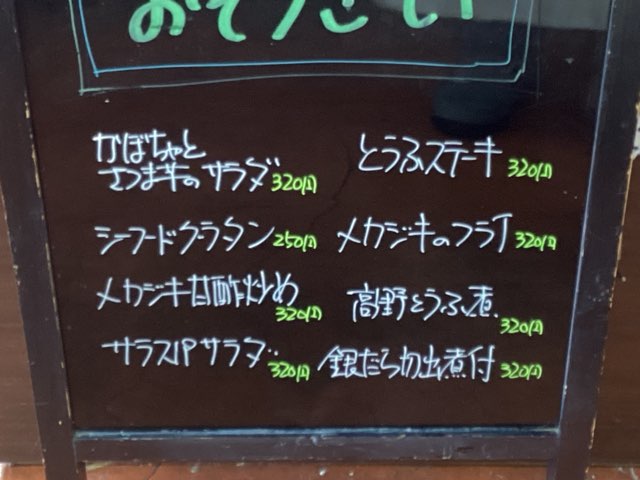 おそうざい
かぼちゃと
さつま芋のサラダ 320(1)
シーフードグラタン 250(1)
メカジキ甘酢炒め
320(1)
サラスパサラダ 320(1)
とうふステーキ 320(1)
メカジキのフライ 320(1)
高野とうふ煮
320(1)
銀だら切出煮付 320(1)